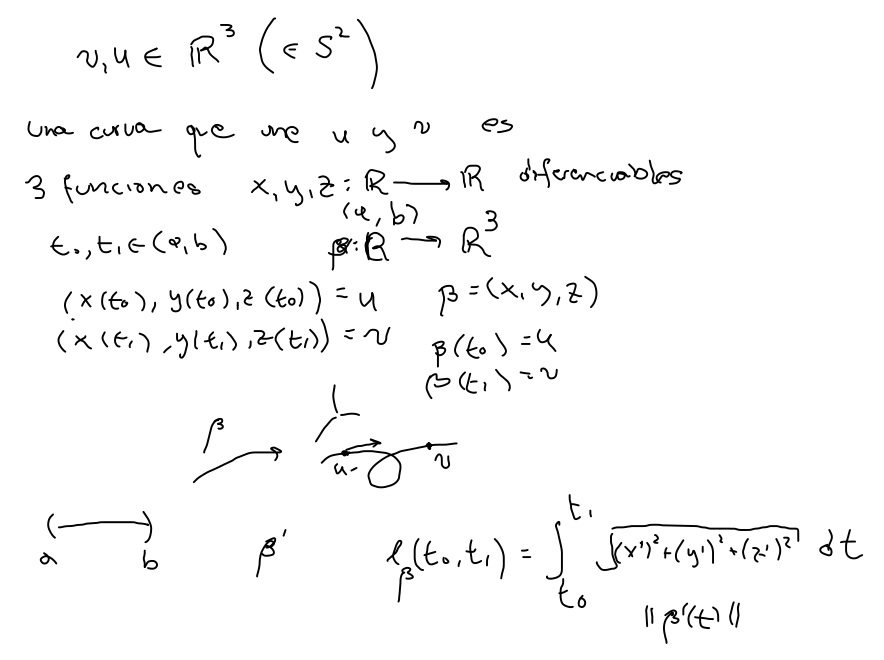 v, u ∈ ℝ³ (∈ S²)
una curva que une u y v es
3 funciones x, y, z : ℝ → ℝ diferenciables
(a, b)
t₀, t₁ ∈ (a, b) β: ℝ → ℝ³
(x(t₀), y(t₀), z(t₀)) = u β = (x, y, z)
(x(t₁), y(t₁), z(t₁)) = v β(t₀) = u
β(t₁) = v
β
u v
a b β' ℓ_β(t₀, t₁) = ∫_{t₀}^{t₁} √((x')² + (y')² + (z')²) dt
‖β'(t)‖